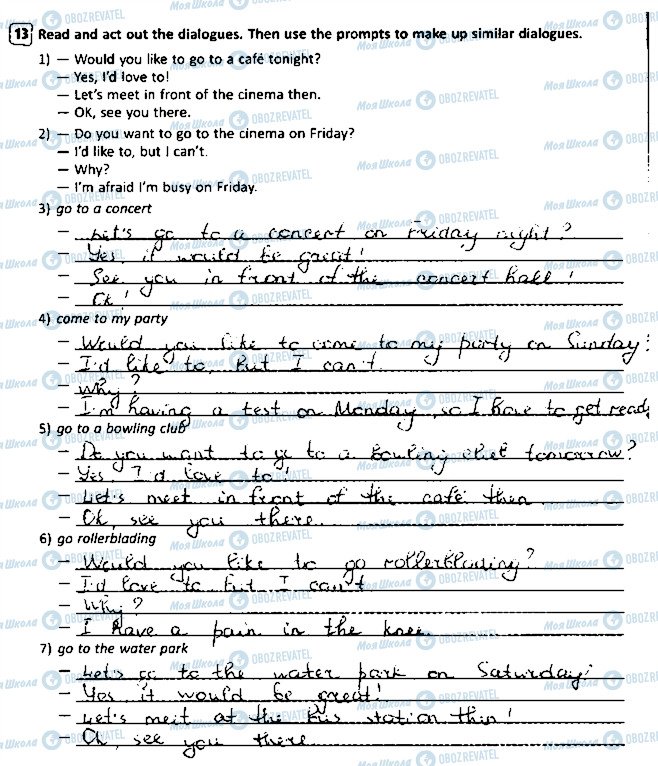 13 Read and act out the dialogues. Then use the prompts to make up similar dialogues.
1) — Would you like to go to a café tonight?
— Yes, I'd love to!
— Let's meet in front of the cinema then.
— OK, see you there.
2) — Do you want to go to the cinema on Friday?
— I'd like to, but I can't.
— Why?
— I'm afraid I'm busy on Friday.
3) go to a concert
— Let's go to a concert on Friday night?
— Yes it would be great!
— See you in front of the concert hall!
— Ok!
4) come to my party
— Would you like to come to my party on Sunday?
— I'd like to, but I can't
— Why?
— I'm having a test on Monday, so I have to get ready
5) go to a bowling club
— Do you want to go to a bowling club tomorrow?
— Yes, I'd love to!
— Let's meet in front of the café then
— Ok, see you there.
6) go rollerblading
— Would you like to go rollerblading?
— I'd love to but I can't
— Why?
— I have a pain in the knee
7) go to the water park
— Let's go to the water park on Saturday?
— Yes, it would be great!
— Let's meit at the bus station then!
— Ok, see you there.
Моя Школа OBOZREVATEL